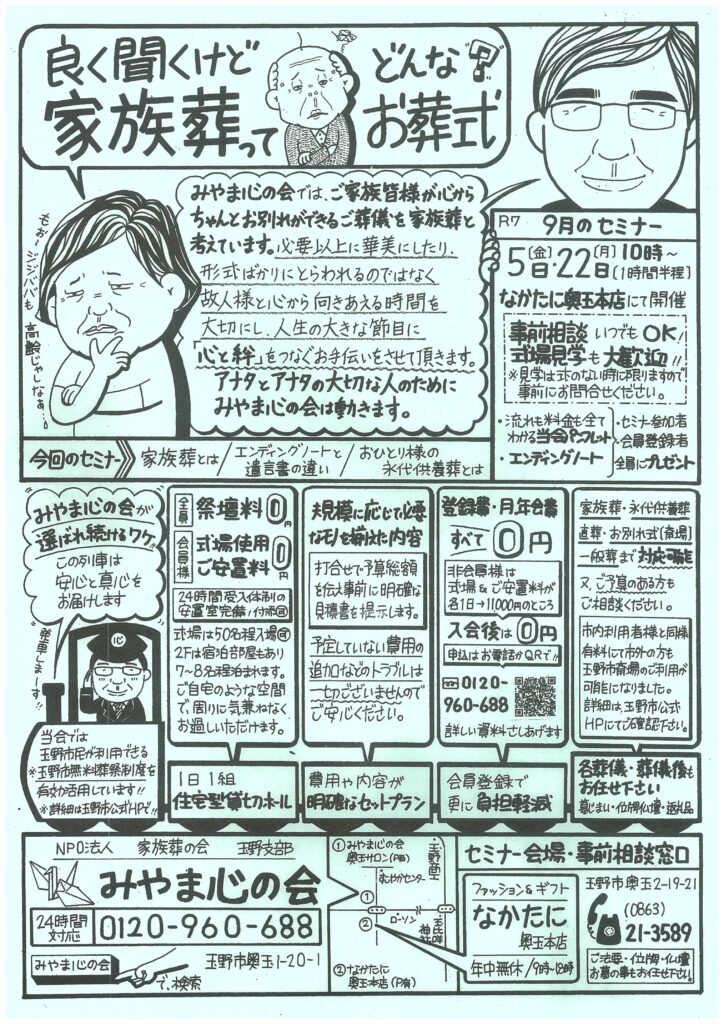 良く聞くけど
家族葬って
どんな?
お葬式
みやま心の会では、ご家族皆様が心から
ちゃんとお別れができるご葬儀を家族葬と
考えています。必要以上に華美にしたり、
形式ばかりにとらわれるのではなく
故人様と心から向きあえる時間を
大切にし、人生の大きな節目に
「心と絆」をつなぐお手伝いをさせて頂きます。
アナタとアナタの大切な人のために
みやま心の会は動きます。
もぉ〜ジジババも
高齢じゃしなぁ…。
R7 9月のセミナー
5日(金)・22日(月)10時〜(1時間半程)
なかたに奥玉本店にて開催
事前相談いつでもOK!
式場見学も大歓迎!!
※見学は式のない時に限りますので
事前にお問合せください。
・流れも料金も全て
わかる当会パンフレット
・エンディングノート
・セミナー参加者
・会員登録者
全員にプレゼント
今回のセミナー
家族葬とは/エンディングノートと遺言書の違い/おひとり様の永代供養葬とは
みやま心の会が
選ばれ続けるワケ!!
この列車は
安心と真心を
お届けします
発車しまーす!!
心
当会では
玉野市民が利用できる
※玉野市無料葬祭制度を
有効活用しています!!
※詳細は玉野市公式HPで!!
全員 祭壇料0円
会員様 式場使用ご安置料0円
24時間受入体制の
安置室完備/付添可
式場は50名程入場可
2Fは宿泊部屋もあり
7〜8名程泊まれます。
ご自宅のような空間
で周りに気兼ねなく
お過しいただけます。
1日1組
住宅型貸切ホール
規模に応じて必要
なモノを揃えた内容
打合せで予算総額
を伝え事前に明確な
見積書を提示します。
予定していない費用の
追加などのトラブルは
一切ございませんので
ご安心ください。
費用や内容が
明確なセットプラン
登録費・月年会費
すべて0円
非会員様は
式場&ご安置料が
各1日→11000円のところ
入会後は0円
申込はお電話かQRで!!
0120-
960-688
詳しい資料さしあげます
会員登録で
更に負担軽減
家族葬・永代供養葬
直葬・お別れ式(斎場)
一般葬まで対応可能
又、ご予算のある方も
ご相談ください。
市内利用者様と同様
有料にて市外の方も
玉野市斎場のご利用が
可能になりました。
詳細は玉野市公式
HPにてご確認下さい。
各葬儀・葬儀後も
お任せ下さい
墓じまい・位牌・仏壇・返礼品
NPO法人 家族葬の会 玉野支部
みやま心の会
24時間対応 0120-960-688
みやま心の会 で、検索
玉野市奥玉1-20-1
①みやま心の会
奥玉サロン(P有)
むねやかセンター
玉野商工
①
②
ローソン
玉比咩神社
②なかたに
奥玉本店(P有)
セミナー会場・事前相談窓口
ファッション&ギフト
なかたに
奥玉本店
年中無休/9時〜18時
玉野市奥玉2-19-21
(0863)
21-3589
ご法要・位牌・仏壇
お墓の事もお任せ下さい。